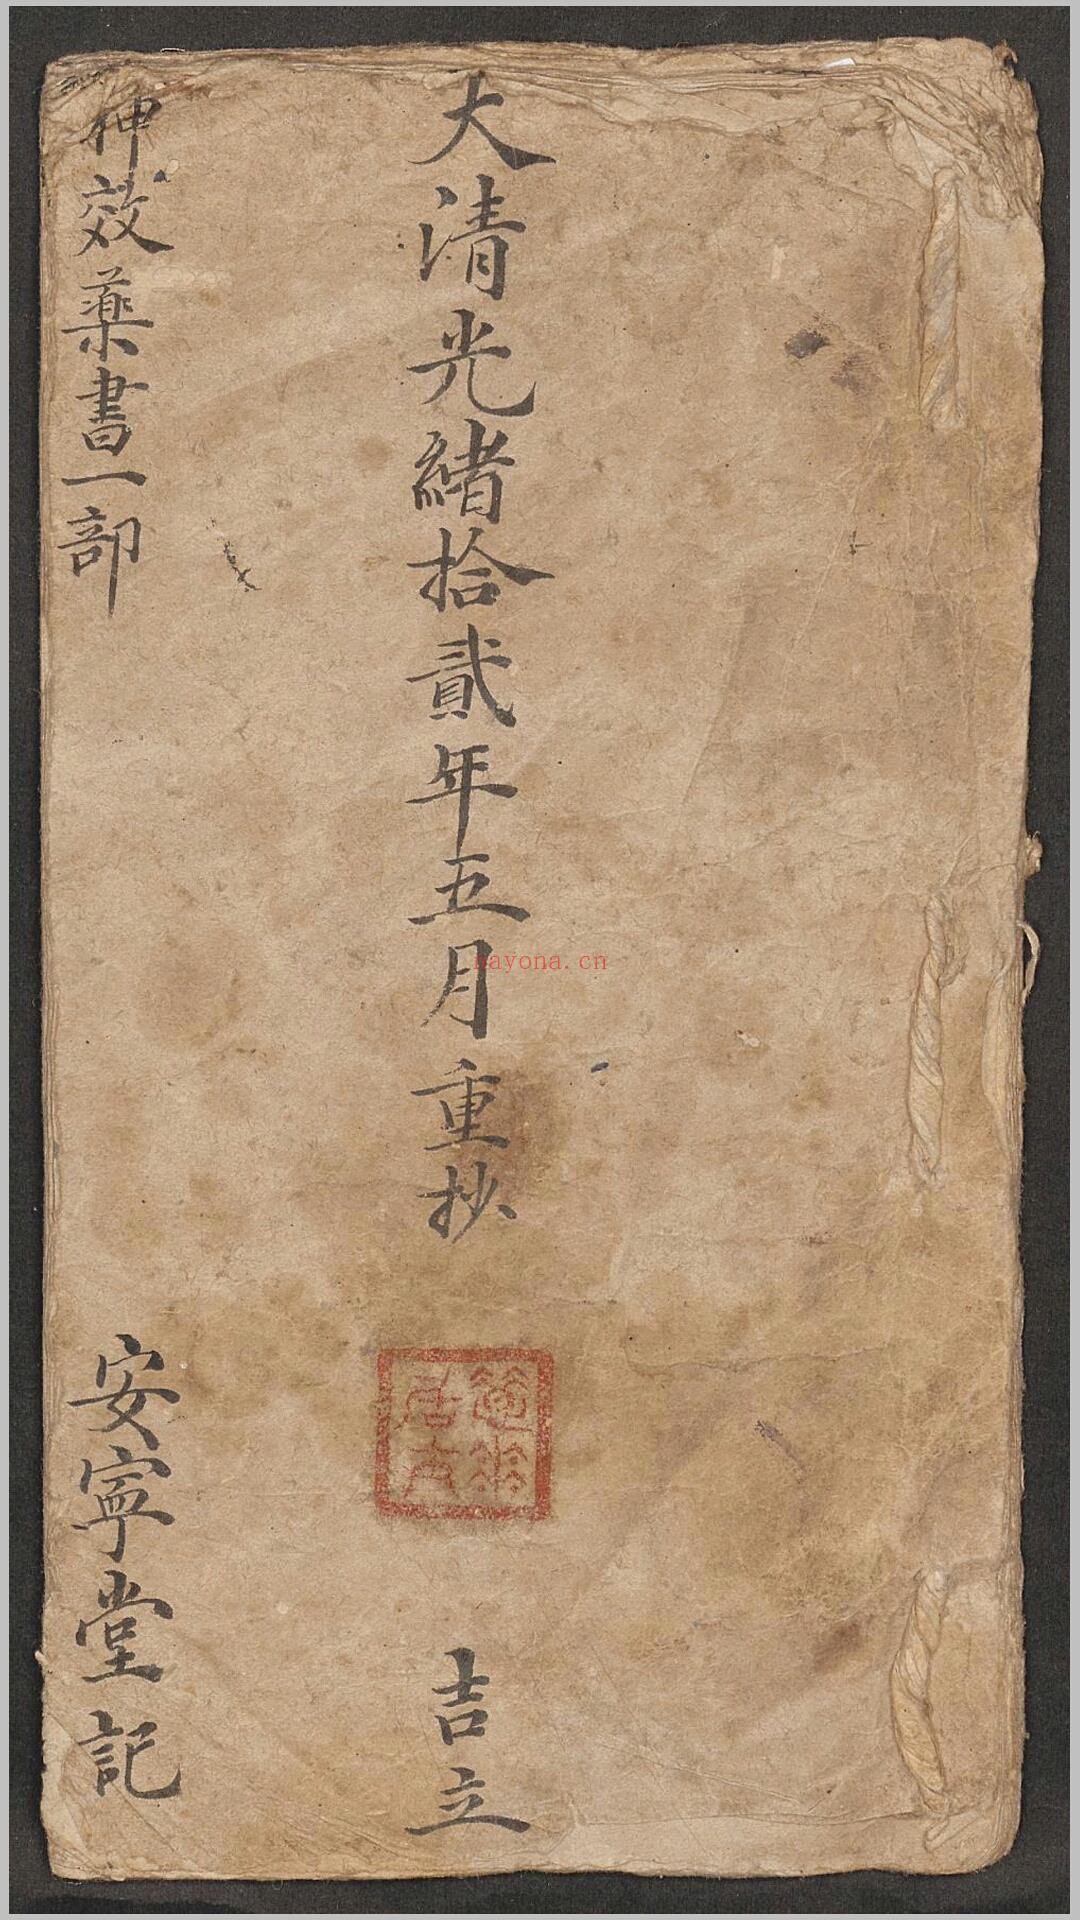 大清光緒拾貳年五月重抄
吉立
神效藥書一部
安寧堂記
nayona.cn